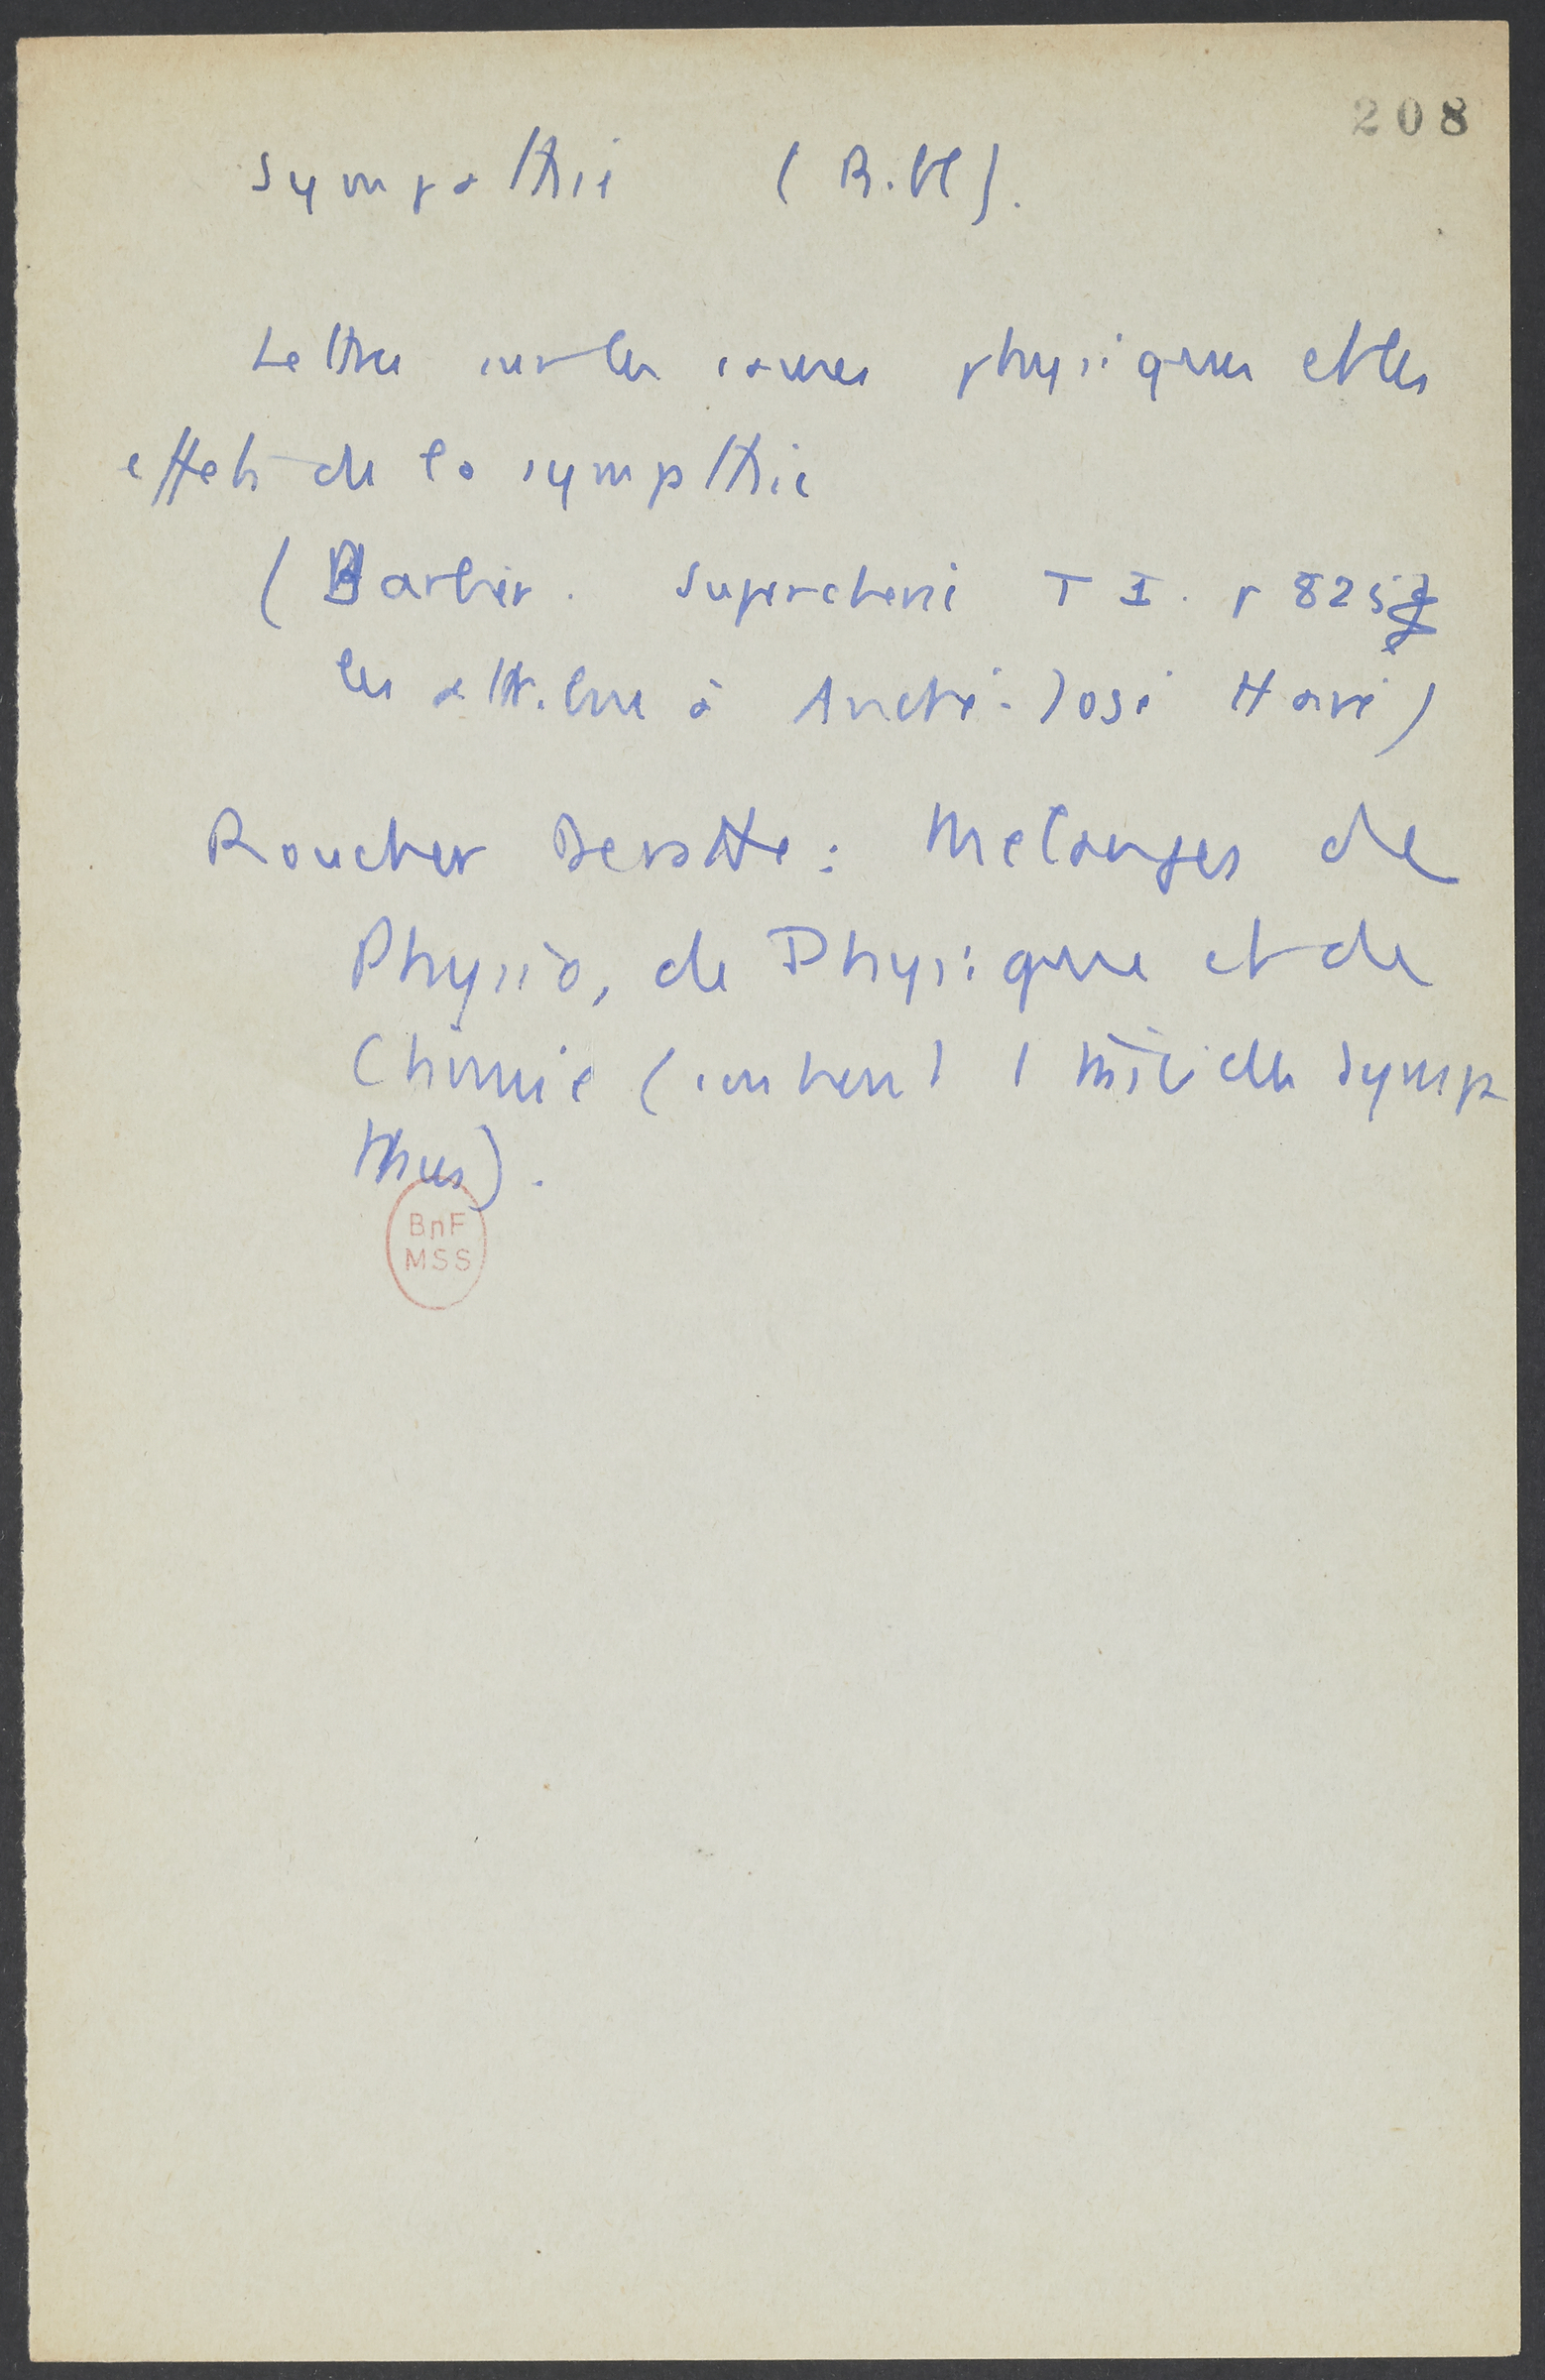 208
Sympathie (Bibl).
Lettre sur les causes physiques et les
effets de la sympthie
(Barbier. Supercherie T I. p 825
les attribue à André-José Havé)
Roucher Deratte : Melanges de
Physio, de Physique et de
Chimie (contient 1 des symp
thies).
BnF
MSS